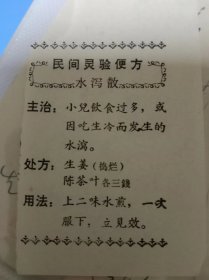 民间灵验便方
水泻散
主治：小兒飲食过多，或
因吃生冷而发生的
水瀉。
处方：生姜（搗烂）
陈茶叶各三錢
用法：上二味水煎，一次
服下，立見效。